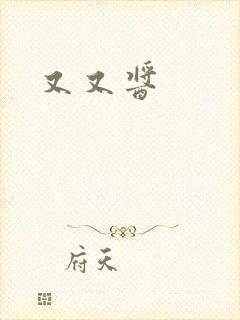 又又酱
府天